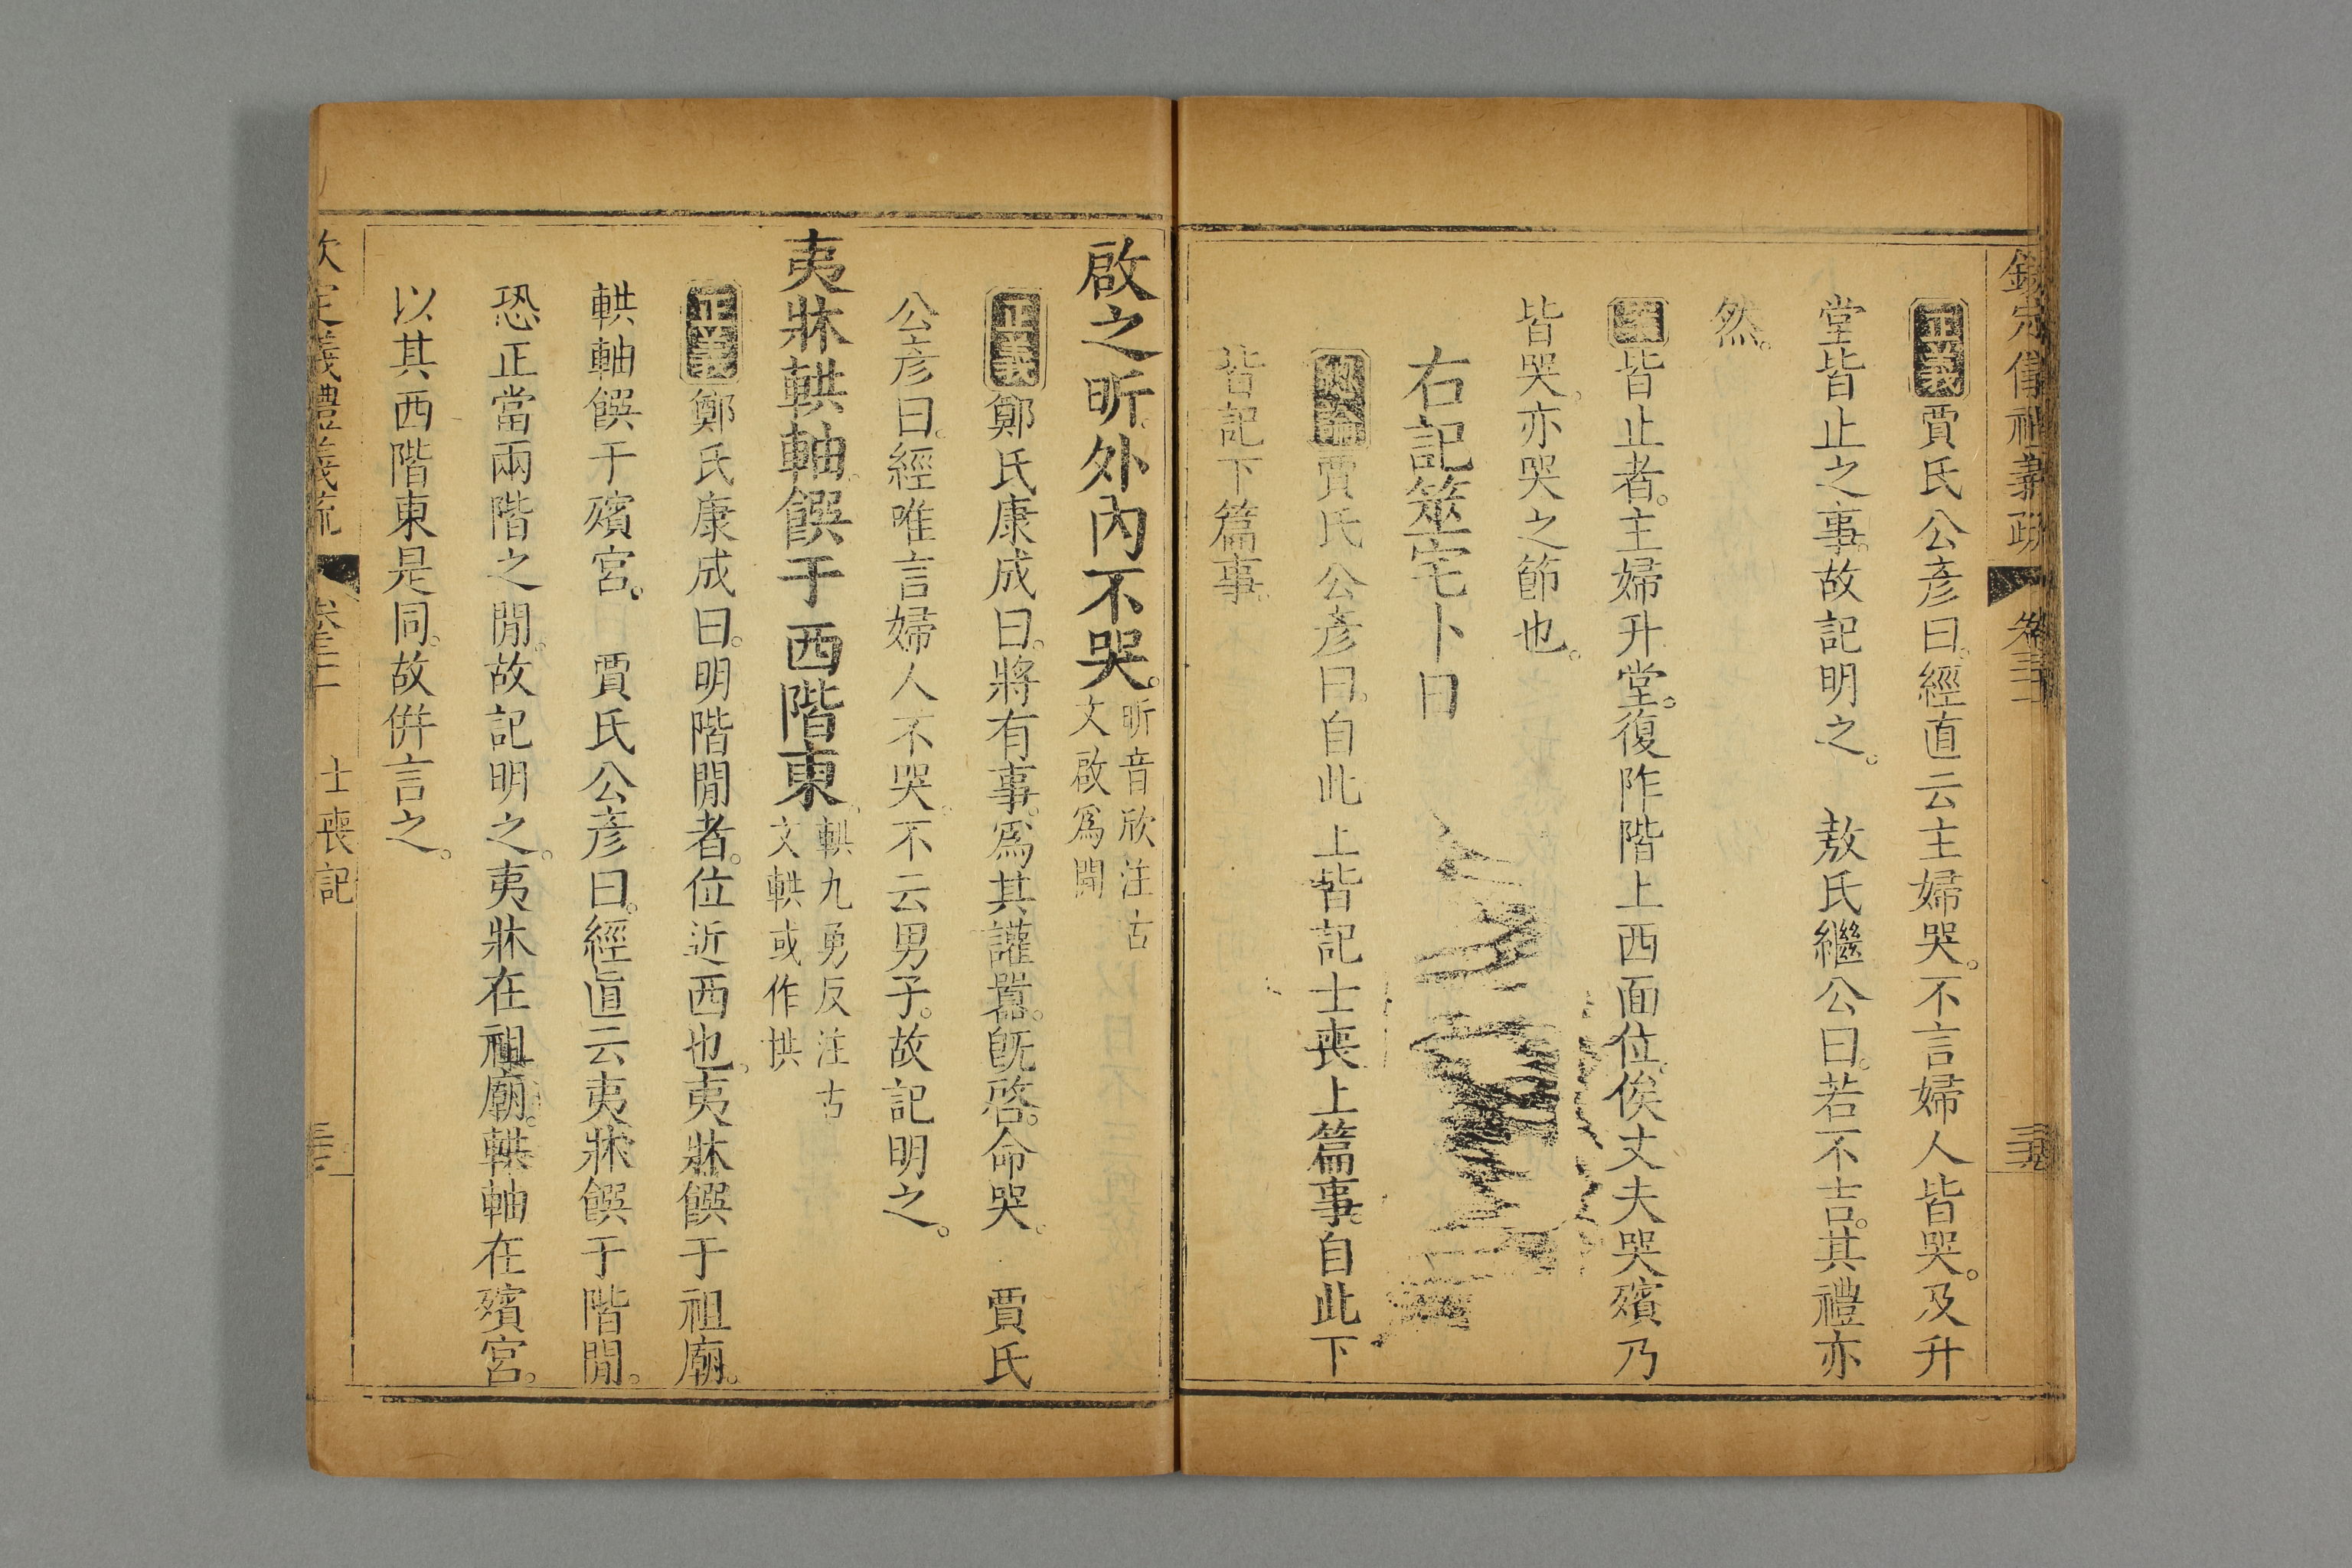 正義賈氏公彥曰。經直云主婦哭。不言婦人皆哭。及升
堂皆止之事。故記明之。　敖氏繼公曰。若不吉。其禮亦
然。
皆止者。主婦升堂。復阼階上西面位。俟丈夫哭殯乃
皆哭。亦哭之節也。
右記筮宅卜日
賈氏公彥曰。自此上皆記士喪上篇事。自此下
皆記下篇事。
啟之昕。外內不哭。昕音欣注古
文啟爲開
正義鄭氏康成曰。將有事。爲其讙囂。旣啓。命哭。　賈氏
公彥曰。經唯言婦人不哭。不云男子。故記明之。
夷牀輁軸。饌于西階東。輁九勇反注古
文輁或作拱
正義鄭氏康成曰。明階閒者。位近西也。夷牀饌于祖廟。
輁軸饌于殯宮。　賈氏公彥曰。經直云夷牀饌于階閒。
恐正當兩階之閒。故記明之。夷牀在祖廟。輁軸在殯宮。
以其西階東是同。故併言之。
士喪記